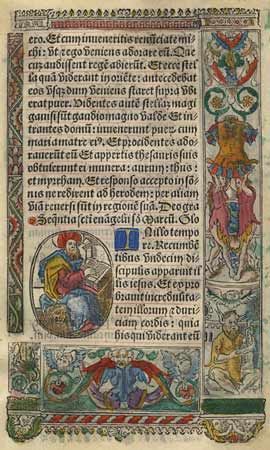 ero. Et cum inueneritis renūciate mi
chi: vt ⁊ ego veniens adorare eū. Qui
cū audissent regē abierūt. Et ecce stel
la quā viderant in oriēte: antecedebat
eos vsqꝫ dum veniens staret supra vbi
erat puer. Videntes autē stellā: magi
gauisi sūt gaudio magno valde Et in
trantes domū: inuenerunt puerū cum
maria matre eiꝰ. Et procidentes ado
rauerūt eū Et appertis thesauris suis
obtulerunt ei munera: aurum: thus:
et myrrham. Et responso accepto in sō
nis ne redirent ad herodem: per aliam
viā reuersi sūt in regionē suā. Deo gra
Sequētia scti euāgelii scđm Marcū. Glo
IN illo tempo
re. Recumbē
tibus vndecim di
scipulis apparuit il
lis iesus. Et expro
brauit incredulita
tem illorum ⁊ duri
ciam cordis: quia
his qui viderant eū